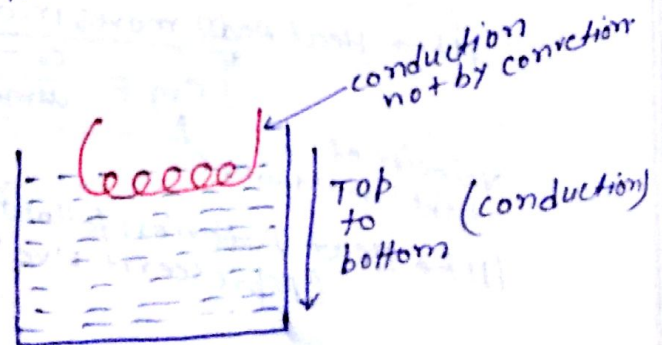 conduction
not by convetion
Top
to
bottom
(conduction)